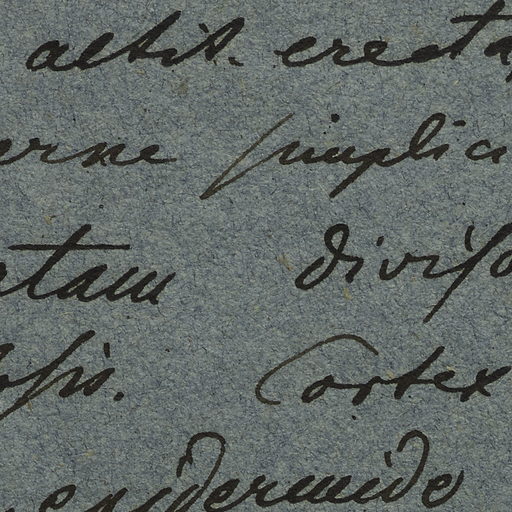 altit. erecta
erne simplici
tam diviso
osis. Cortex
epidermide